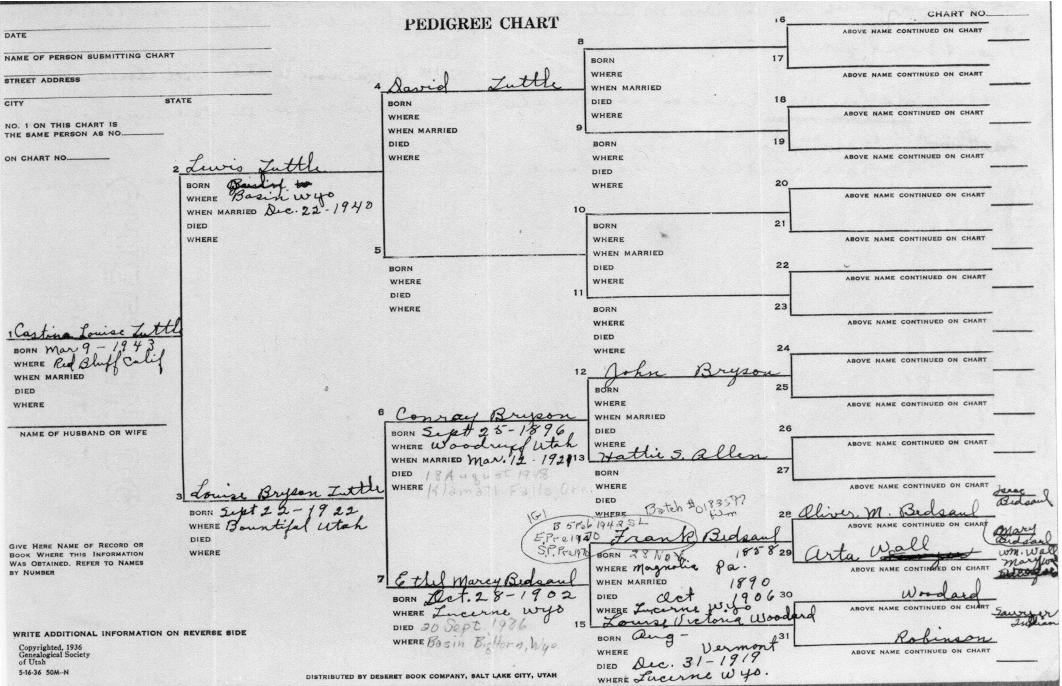 PEDIGREE CHART
CHART NO.
DATE
NAME OF PERSON SUBMITTING CHART
STREET ADDRESS
CITY STATE
NO. 1 ON THIS CHART IS
THE SAME PERSON AS NO.
ON CHART NO.
1 Castina Louise Tuttle
BORN Mar 9 - 1943
WHERE Red Bluff Calif
WHEN MARRIED
DIED
WHERE
NAME OF HUSBAND OR WIFE
2 Lewis Tuttle
BORN
WHERE Basin Wyo
WHEN MARRIED Dec. 22 - 1940
DIED
WHERE
3 Louise Bryson Tuttle
BORN Sept 22 - 1922
WHERE Bountiful Utah
DIED
WHERE
4 David Tuttle
BORN
WHERE
WHEN MARRIED
DIED
WHERE
5
BORN
WHERE
DIED
WHERE
6 Conray Bryson
BORN Sept 25 - 1896
WHERE Woodruff Utah
WHEN MARRIED Mar. 12 - 1921
DIED 18 August
WHERE Klamath Falls, Ore.
7 Ethel Marcy Bedsaul
BORN Oct. 28 - 1902
WHERE Lucerne Wyo
DIED 20 Sept. 1936
WHERE Basin BigHorn, Wyo
8
BORN
WHERE
WHEN MARRIED
DIED
WHERE
9
BORN
WHERE
DIED
WHERE
10
BORN
WHERE
WHEN MARRIED
DIED
WHERE
11
BORN
WHERE
DIED
WHERE
12 John Bryson
BORN
WHERE
WHEN MARRIED
DIED
WHERE
13 Hattie S. Allen
BORN
WHERE
DIED
WHERE
Batch #0183597
IGI
B 5 Feb 1942 SL
E Pre 1970
S.P. Pre 1970
Frank Bedsaul
BORN 28 Nov 1858
WHERE Magnolia Pa.
WHEN MARRIED 1890
DIED Oct 1906
WHERE Lucerne Wyo
15 Louise Victoria Woodard
BORN Aug -
WHERE Vermont
DIED Dec. 31 - 1919
WHERE Lucerne Wyo.
16
ABOVE NAME CONTINUED ON CHART
17
ABOVE NAME CONTINUED ON CHART
18
ABOVE NAME CONTINUED ON CHART
19
ABOVE NAME CONTINUED ON CHART
20
ABOVE NAME CONTINUED ON CHART
21
ABOVE NAME CONTINUED ON CHART
22
ABOVE NAME CONTINUED ON CHART
23
ABOVE NAME CONTINUED ON CHART
24
ABOVE NAME CONTINUED ON CHART
25
ABOVE NAME CONTINUED ON CHART
26
ABOVE NAME CONTINUED ON CHART
27
ABOVE NAME CONTINUED ON CHART
Isaac
Bedsaul
28 Oliver M. Bedsaul
ABOVE NAME CONTINUED ON CHART
Mary
Bedsaul
29 Arta Wall
ABOVE NAME CONTINUED ON CHART
Wm. Wall
Mary
30 Woodard
ABOVE NAME CONTINUED ON CHART
Sawyer
Indian
31 Robinson
ABOVE NAME CONTINUED ON CHART
GIVE HERE NAME OF RECORD OR
BOOK WHERE THIS INFORMATION
WAS OBTAINED. REFER TO NAMES
BY NUMBER
WRITE ADDITIONAL INFORMATION ON REVERSE SIDE
Copyrighted, 1936
Genealogical Society
of Utah
5-16-36 50M-N
DISTRIBUTED BY DESERET BOOK COMPANY, SALT LAKE CITY, UTAH